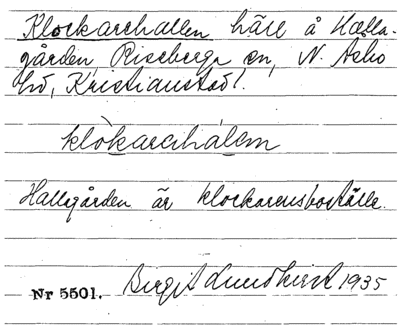 Klockarehallen häll å Halla-
gården, Riseberga sn, N. Åsbo
hd, Kristianstad l.
klòkarehálen
Hallagården är klockarensboställe.
Nr 5501. Birgit Lundkvist 1935